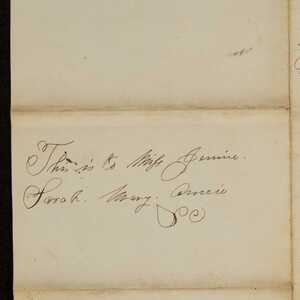 This is to Miss Jennie.
Sarah. Mary.